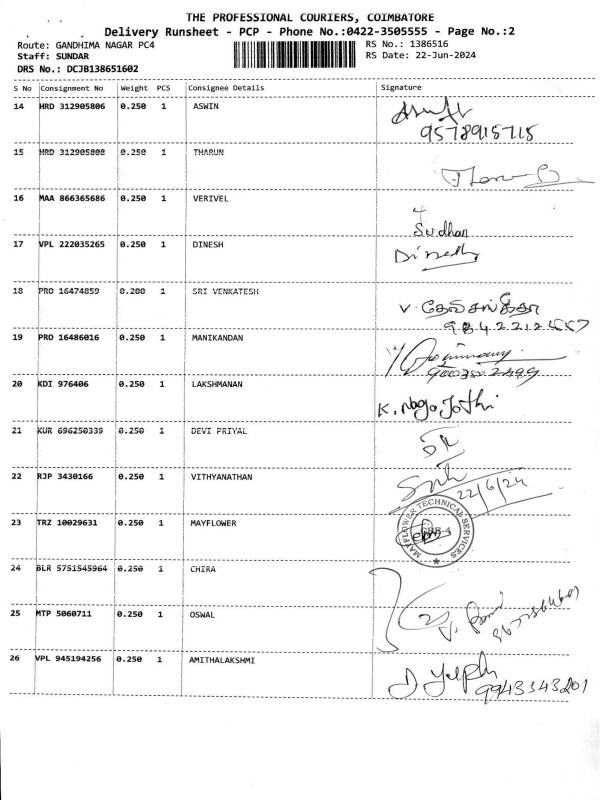 THE PROFESSIONAL COURIERS, COIMBATORE
Delivery Runsheet - PCP - Phone No.:0422-3505555 - Page No.:2
Route: GANDHIMA NAGAR PC4 RS No.: 1386516
Staff: SUNDAR RS Date: 22-Jun-2024
DRS No.: DCJB138651602
S No Consignment No Weight PCS Consignee Details Signature
14 HRD 312905806 0.250 1 ASWIN
9578915715
15 HRD 312905808 0.250 1 THARUN
16 MAA 866365686 0.250 1 VERIVEL
Sudhan
17 VPL 222035265 0.250 1 DINESH
Dinesh
18 PRO 16474859 0.200 1 SRI VENKATESH
19 PRO 16486016 0.250 1 MANIKANDAN
20 KDI 976406 0.250 1 LAKSHMANAN
K. Naga Jothi
21 KUR 696250339 0.250 1 DEVI PRIYAL
22 RJP 3430166 0.250 1 VITHYANATHAN
22/6/24
23 TRZ 10029631 0.250 1 MAYFLOWER
MAYFLOWER TECHNICAL SERVICES
24 BLR 5751545964 0.250 1 CHIRA
25 MTP 5060711 0.250 1 OSWAL
26 VPL 945194256 0.250 1 AMITHALAKSHMI
9943343201